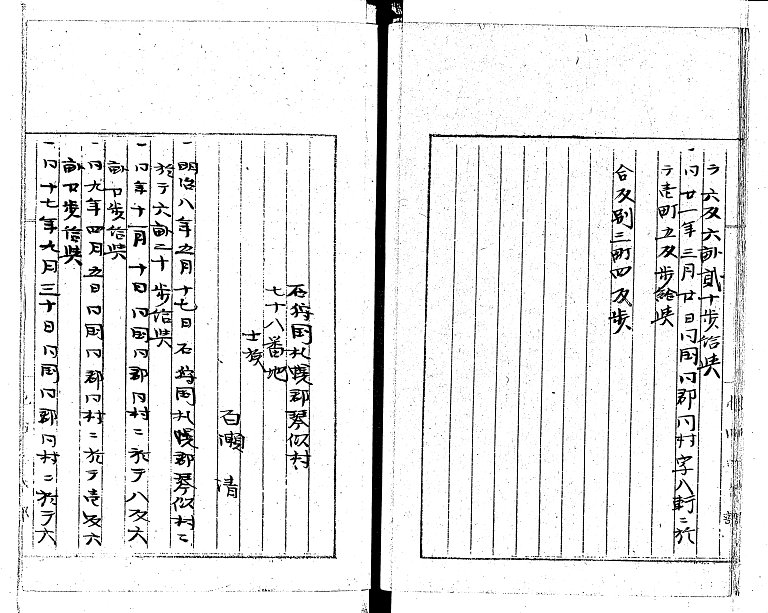 テ六反六畝貳十歩給与
一同廿一年三月廿日同国同郡同村字八軒ニ於
テ壱町五反歩給与
合反別三町四反歩
石狩国札幌郡琴似村
七十八番地
士族
石瀬 清
一明治八年五月十七日石狩国札幌郡琴似村ニ
於テ六畝二十歩給与
一同年十一月十日同国同郡同村ニ於テ八反六
畝廿歩給与
一同九年四月五日同国同郡同村ニ於テ壱反六
畝廿歩給与
一同十七年九月三十日同国同郡同村ニ於テ六